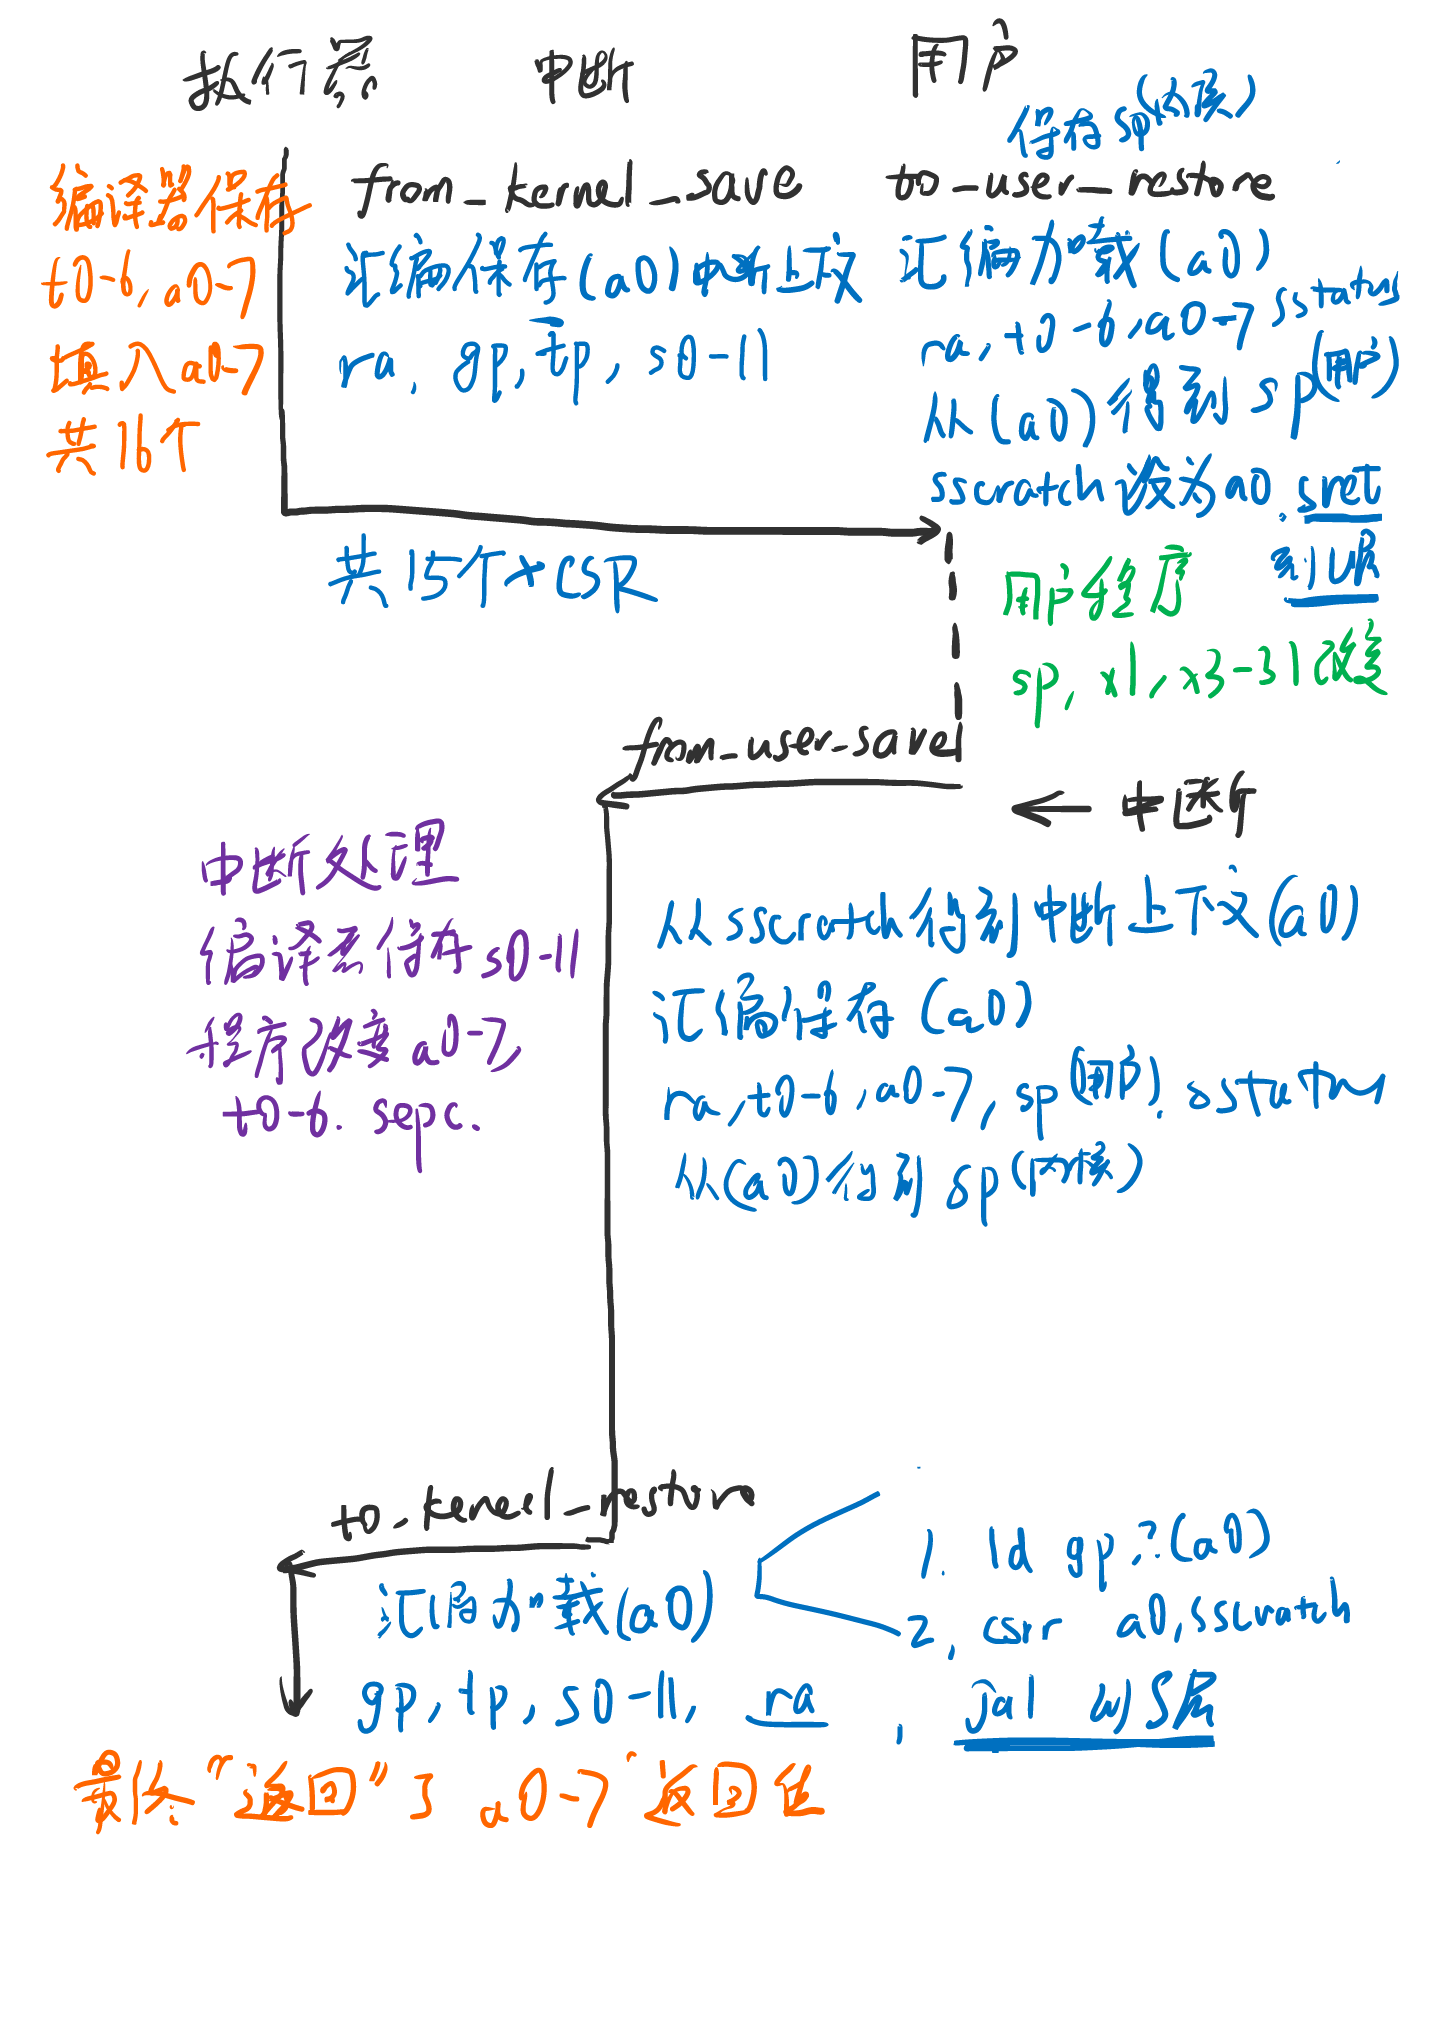 执行器 中断 用户
保存sp(内核)
编译器保存
t0-6, a0-7
填入a0-7
共16个
from_kernel_save
汇编保存(a0)中断上下文
ra, gp, tp, s0-11
共15个+CSR
to_user_restore
汇编加载(a0)
ra, t0-6, a0-7 sstatus
从(a0)得到sp(用户)
sscratch设为a0, sret
到U层
用户程序
sp, x1, x3-31改变
from_user_save
← 中断
中断处理
编译器保存s0-11
程序改变a0-7,
t0-6. sepc.
从sscratch得到中断上下文(a0)
汇编保存(a0)
ra, t0-6, a0-7, sp(用户). sstatus
从(a0)得到sp(内核)
to_kernel_restore
汇编加载(a0)
1. ld gp, ?(a0)
2, csrr a0, sscratch
gp, tp, s0-11, ra, jal 以S层
最终“返回”了a0-7返回值